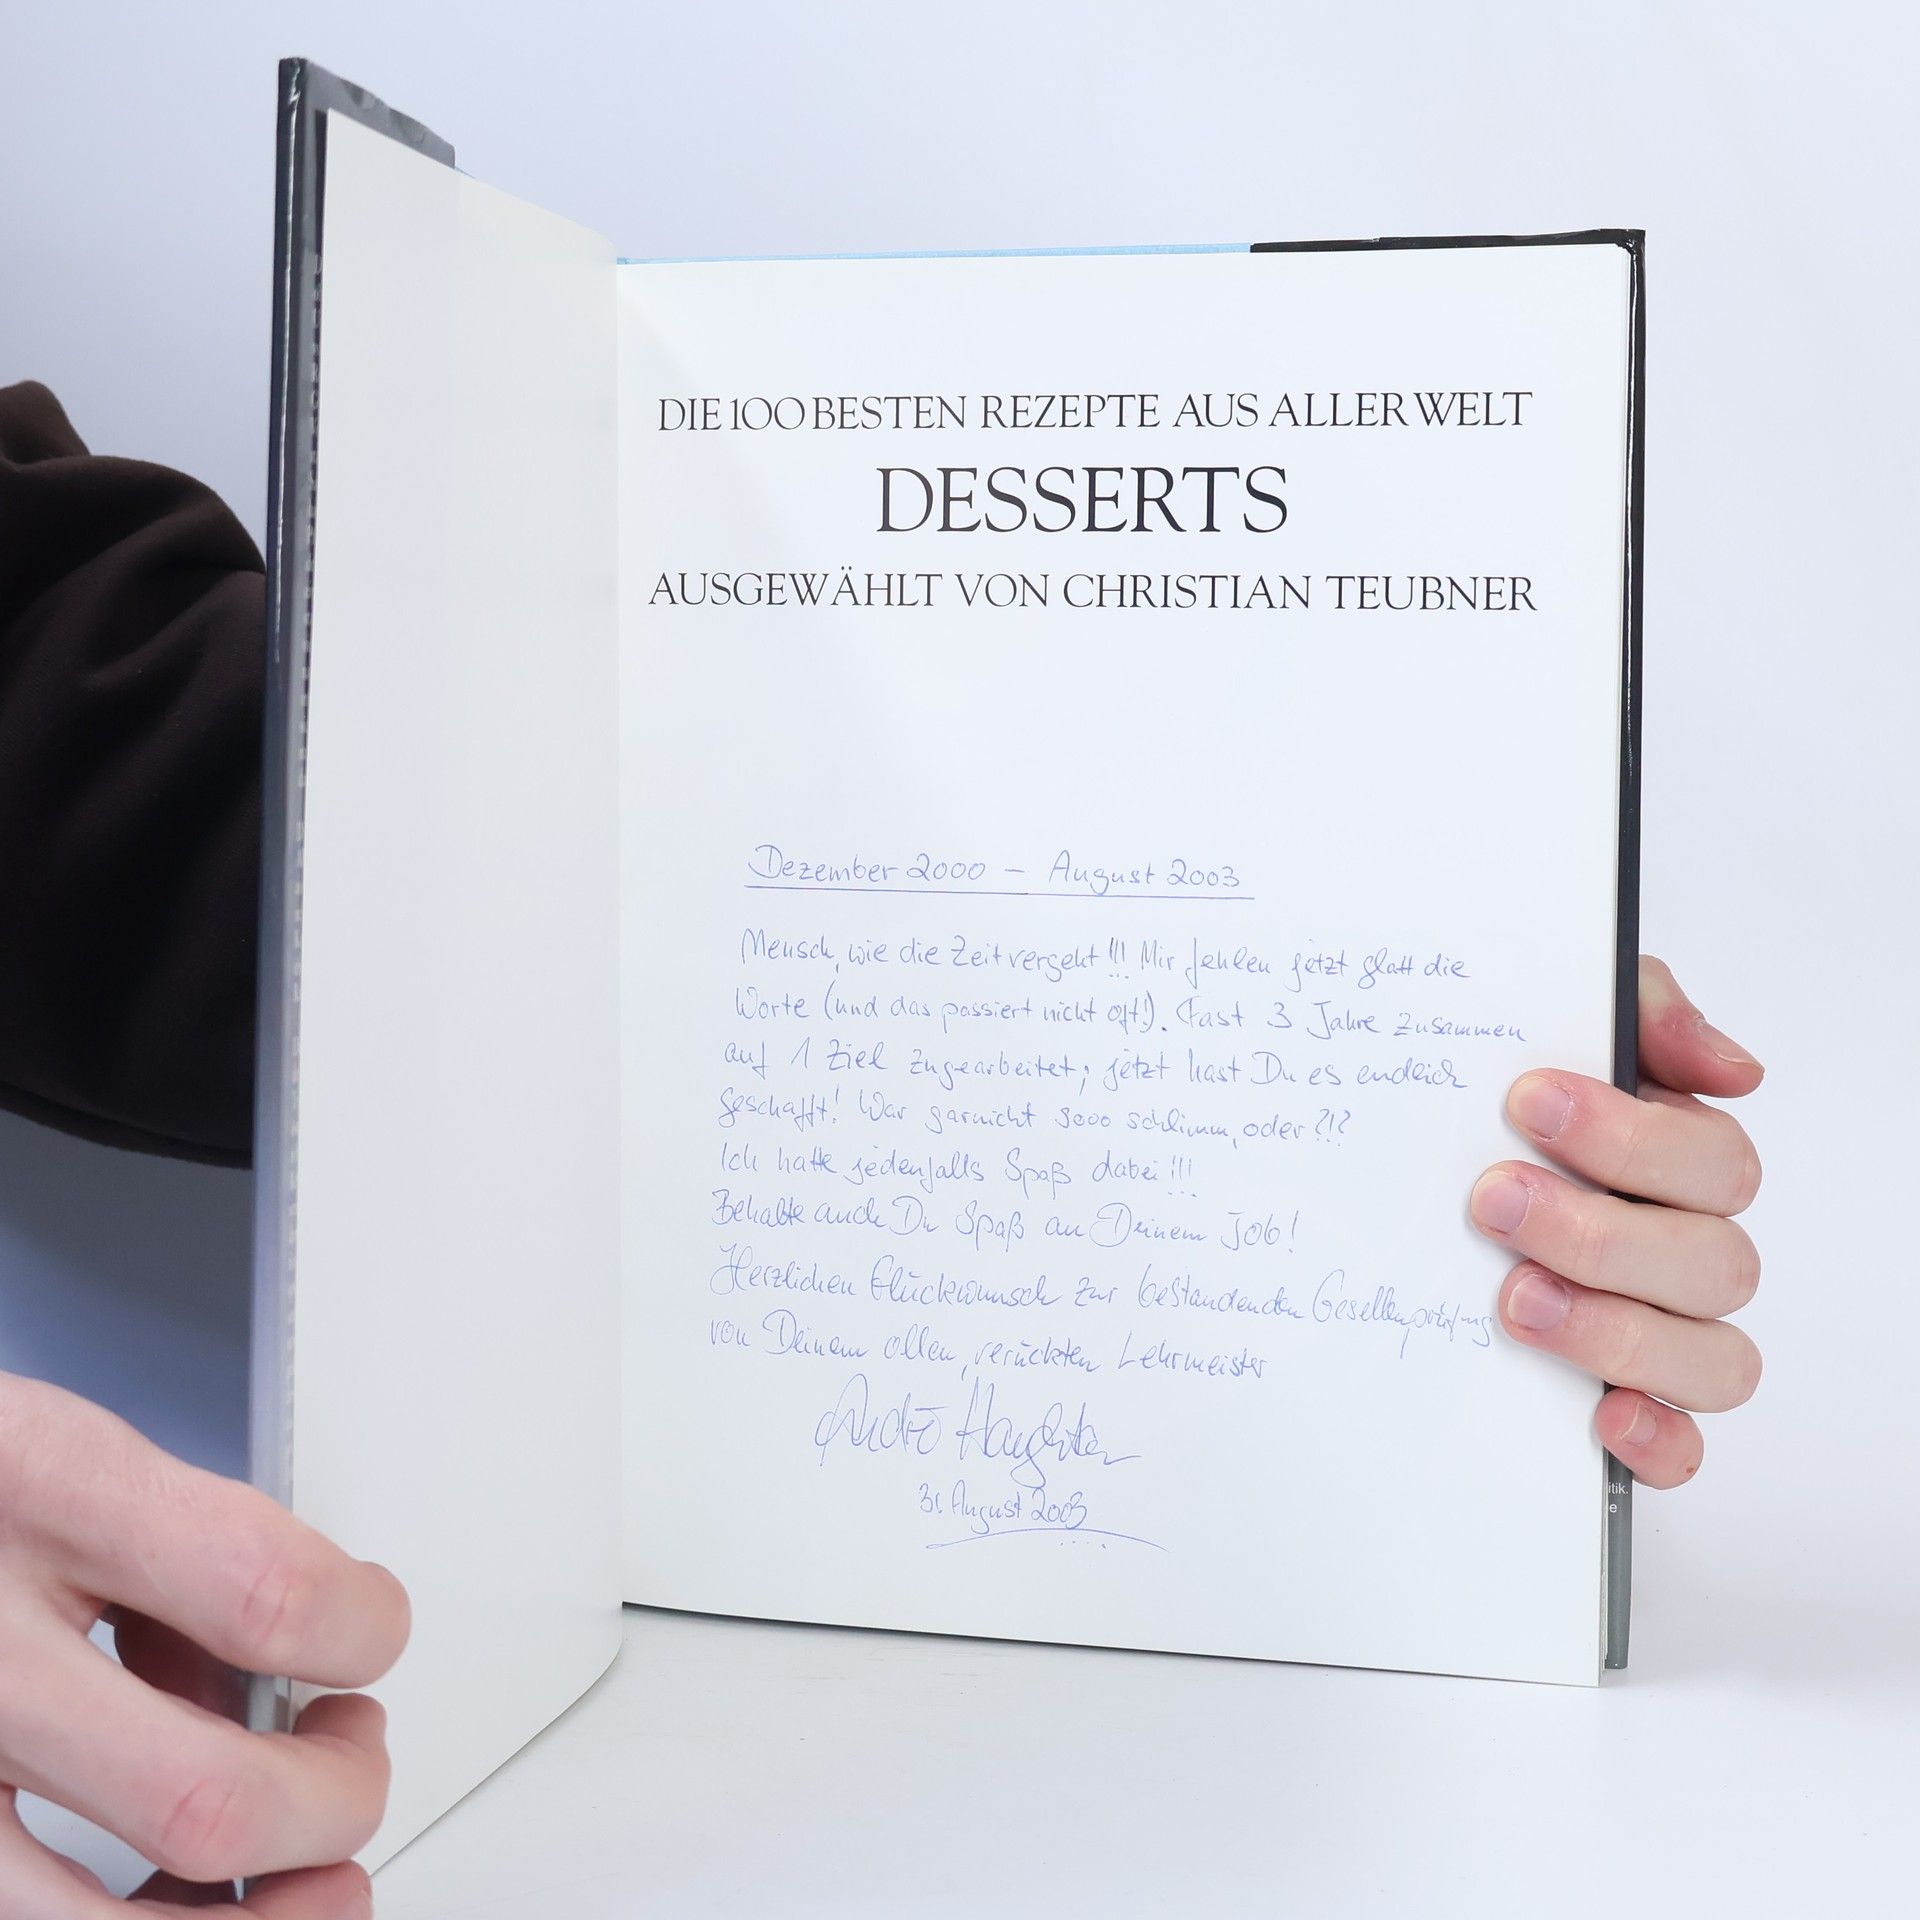 DIE 100 BESTEN REZEPTE AUS ALLER WELT
DESSERTS
AUSGEWÄHLT VON CHRISTIAN TEUBNER
Dezember 2000 – August 2003
Mensch, wie die Zeit vergeht!!! Mir fehlen jetzt glatt die
Worte (und das passiert nicht oft!). Fast 3 Jahre zusammen
auf 1 Ziel zugearbeitet, jetzt hast Du es endlich
geschafft! War garnicht sooo schlimm, oder?!?
Ich hatte jedenfalls Spaß dabei!!!
Behalte auch Du Spaß an Deinem Job!
Herzlichen Glückwunsch zur bestandenden Gesellenprüfung
von Deinem ollen, verückten Lehrmeister
André
31. August 2003
itik.
e